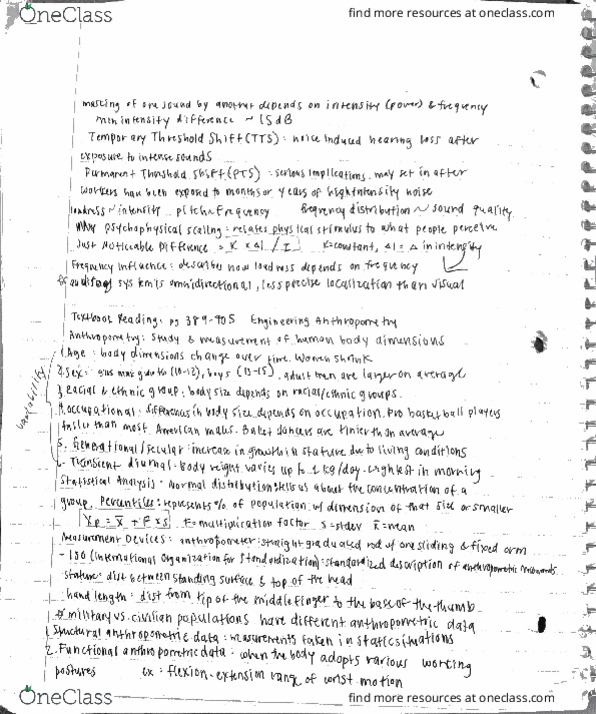 OneClass
find more resources at oneclass.com
masking of one sound by another depends on intensity (power) & frequency
min intensity difference ~ 15dB
Temporary Threshold Shift (TTS): noise induced hearing loss after
exposure to intense sounds
Permanent Threshold Shift (PTS): serious implications. may set in after
workers have been exposed to months or years of high intensity noise
loudness ~ intensity pitch ~ frequency frequency distribution ~ sound quality
psychophysical scaling: relates physical stimulus to what people perceive
Just Noticeable Difference = K x ΔI / I K=constant, ΔI = Δ in intensity
Frequency Influence: describes how loudness depends on frequency
auditory system is omnidirectional, less precise localization than visual
Textbook Reading: pg 389-405 Engineering Anthropometry
Anthropometry: study & measurement of human body dimensions
Variability
1. Age: body dimensions change over time. Women shrink
2. Sex: max growth (10-12), boys (13-15). adult men are larger on average
3. Racial & ethnic group: body size depends on racial/ethnic groups.
4. occupational: differences in body size depends on occupation. Pro basketball players
taller than most American males. Ballet dancers are thinner than average
5. Generational/Secular: increase in growth in stature due to living conditions
6. Transient diurnal: body weight varies up to 1 kg/day. highest in morning
Statistical Analysis: normal distribution tells us about the concentration of a
group. Percentiles: represents % of population w/ dimension of that size or smaller
Xp = x̄ + F x s F=multiplication factor s=stdev x̄=mean
Measurement Devices: anthropometer: straight graduated rod w/ one sliding & fixed arm
- ISO (International Organization for Standardization): standardized description of anthropometric
stature: dist between standing surface & top of the head
hand length: dist from tip of the middle finger to the base of the thumb
* military vs. civilian populations have different anthropometric data
1. Structural anthropometric data: measurements taken in static situations
2. Functional anthropometric data: when the body adopts various working
postures ex: flexion-extension range of wrist motion
OneClass
find more resources at oneclass.com